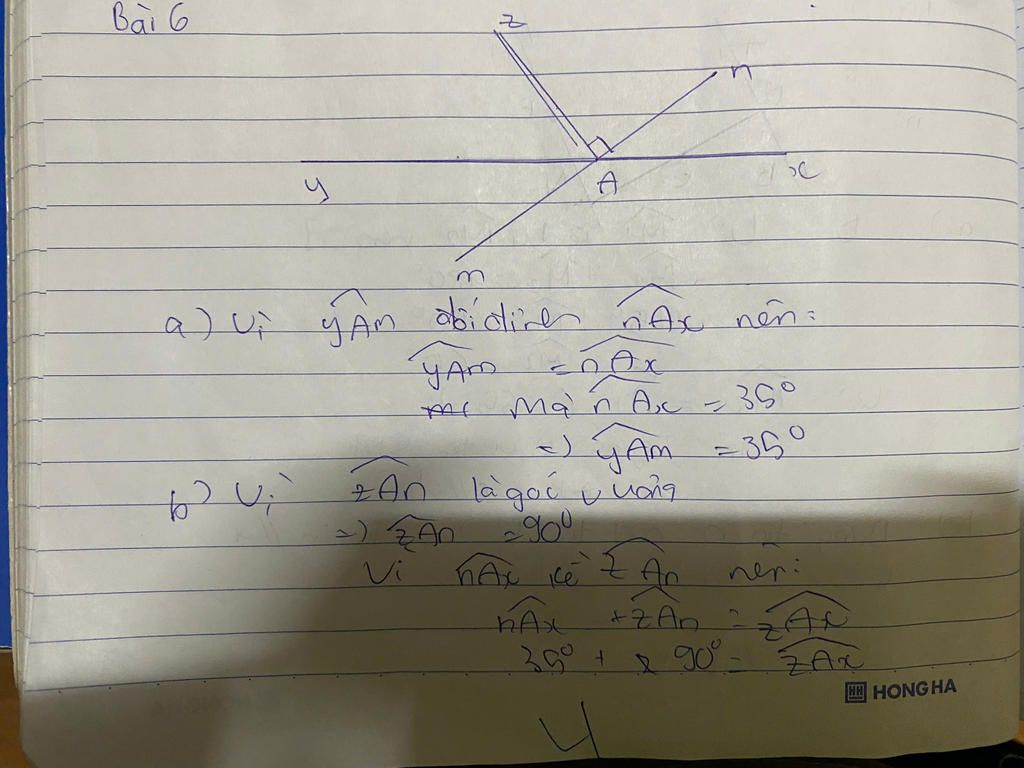 Bài 6
z
n
y
A
x
m
a) Vì yAm đối đỉnh nAx nên:
yAm = nAx
Mà nAx = 35°
=) yAm = 35°
b) Vì zAn là góc vuông
=) zAn = 90°
Vì nAx kề zAn nên:
nAx + zAn = zAx
35° + 90° = zAx
HH HONG HA